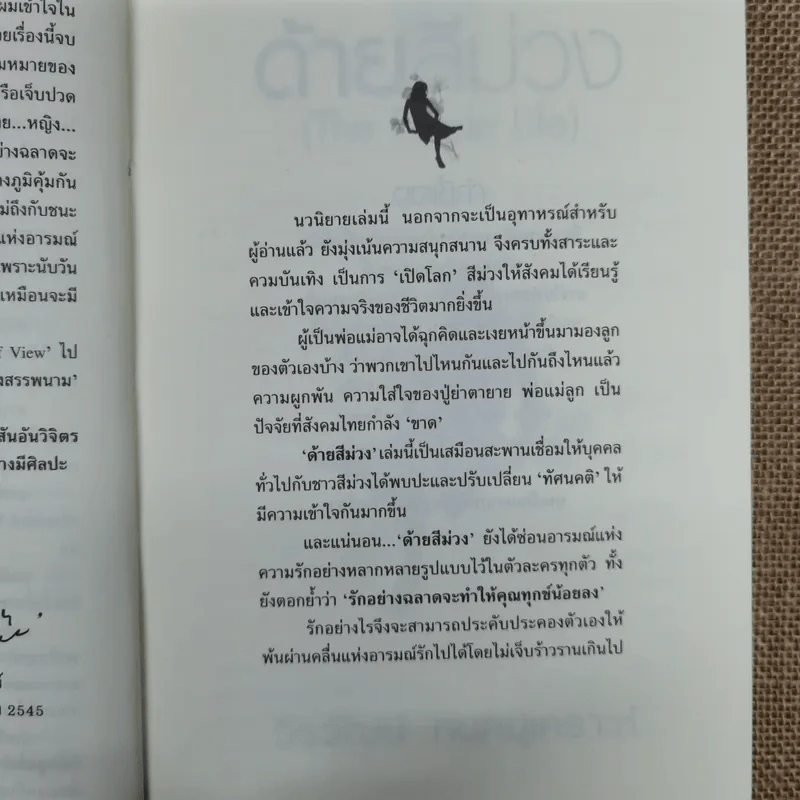 มเข้าใจใน
ยเรื่องนี้จบ
มหมายของ
รือเจ็บปวด
ย...หญิง...
ย่างฉลาดจะ
งภูมิคุ้มกัน
ม่ถึงกับชนะ
แห่งอารมณ์
เพราะนับวัน
เหมือนจะมี
f View’ ไป
งสรรพนาม’
สันอันวิจิตร
างมีศิลปะ
2545
นวนิยายเล่มนี้ นอกจากจะเป็นอุทาหรณ์สำหรับ
ผู้อ่านแล้ว ยังมุ่งเน้นความสนุกสนาน จึงครบทั้งสาระและ
ควมบันเทิง เป็นการ ‘เปิดโลก’ สีม่วงให้สังคมได้เรียนรู้
และเข้าใจความจริงของชีวิตมากยิ่งขึ้น
ผู้เป็นพ่อแม่อาจได้ฉุกคิดและเงยหน้าขึ้นมามองลูก
ของตัวเองบ้าง ว่าพวกเขาไปไหนกันและไปกันถึงไหนแล้ว
ความผูกพัน ความใส่ใจของปู่ย่าตายาย พ่อแม่ลูก เป็น
ปัจจัยที่สังคมไทยกำลัง ‘ขาด’
‘ด้ายสีม่วง’ เล่มนี้เป็นเสมือนสะพานเชื่อมให้บุคคล
ทั่วไปกับชาวสีม่วงได้พบปะและปรับเปลี่ยน ‘ทัศนคติ’ ให้
มีความเข้าใจกันมากขึ้น
และแน่นอน...‘ด้ายสีม่วง’ ยังได้ซ่อนอารมณ์แห่ง
ความรักอย่างหลากหลายรูปแบบไว้ในตัวละครทุกตัว ทั้ง
ยังตอกย้ำว่า ‘รักอย่างฉลาดจะทำให้คุณทุกข์น้อยลง’
รักอย่างไรจึงจะสามารถประคับประคองตัวเองให้
พ้นผ่านคลื่นแห่งอารมณ์รักไปได้โดยไม่เจ็บร้าวรานเกินไป